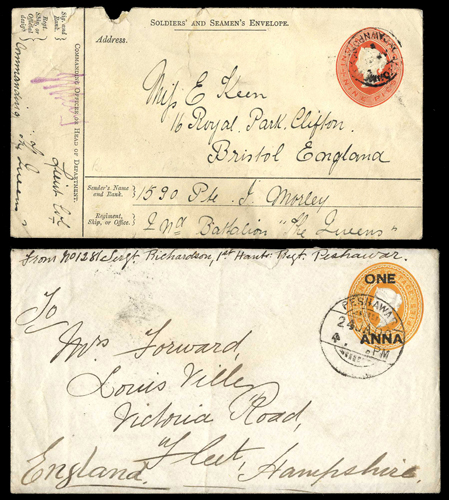 SOLDIERS' AND SEAMEN'S ENVELOPE.
Address.
Miss E Keen
16 Royal Park. Clifton.
Bristol England
Sender's Name and Rank.
1590 Pte. J. Morley
Regiment, Ship, or Office.
2nd Battalion "The Queens"
COMMANDING OFFICER OR HEAD OF DEPARTMENT.
Sig. and Rank.
Regt. Ship, or Official design
Lieut Col
Commanding
The Queens
From No 1281 Sergt. Richardson, 1st Hants Regt. Peshawar.
ONE
ANNA
PESHAWAR
24 JA
PM
To
Mrs Forward,
Louis Ville
Victoria Road,
Fleet,
England. Hampshire.